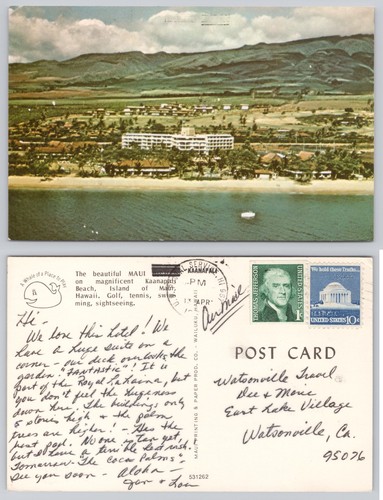 A Whale of a Place to Play
The beautiful MAUI
on magnificent Kaanapali
Beach, Island of Maui,
Hawaii. Golf, tennis, swim-
ming, sightseeing.
KAANAPALI
PM
APR
Air Mail
THOMAS JEFFERSON
1c
UNITED STATES
We hold these Truths...
10c
UNITED STATES
POST CARD
Hi -
We love this hotel! We
have a huge suite on a
corner - our deck overlooks the
garden "FANTASTIC"! It is
part of the Royal Lahaina, but
you don't feel the hugeness
down here. The building only
5 stories high & the palm
trees are higher! - Has the
best pool. No one
but I have a terrible
Tomorrow "The Coco Palms"
See you soon - Aloha -
Watsonville Travel
Dee & Marie
East Lake Village
Watsonville, Ca.
95076
531202